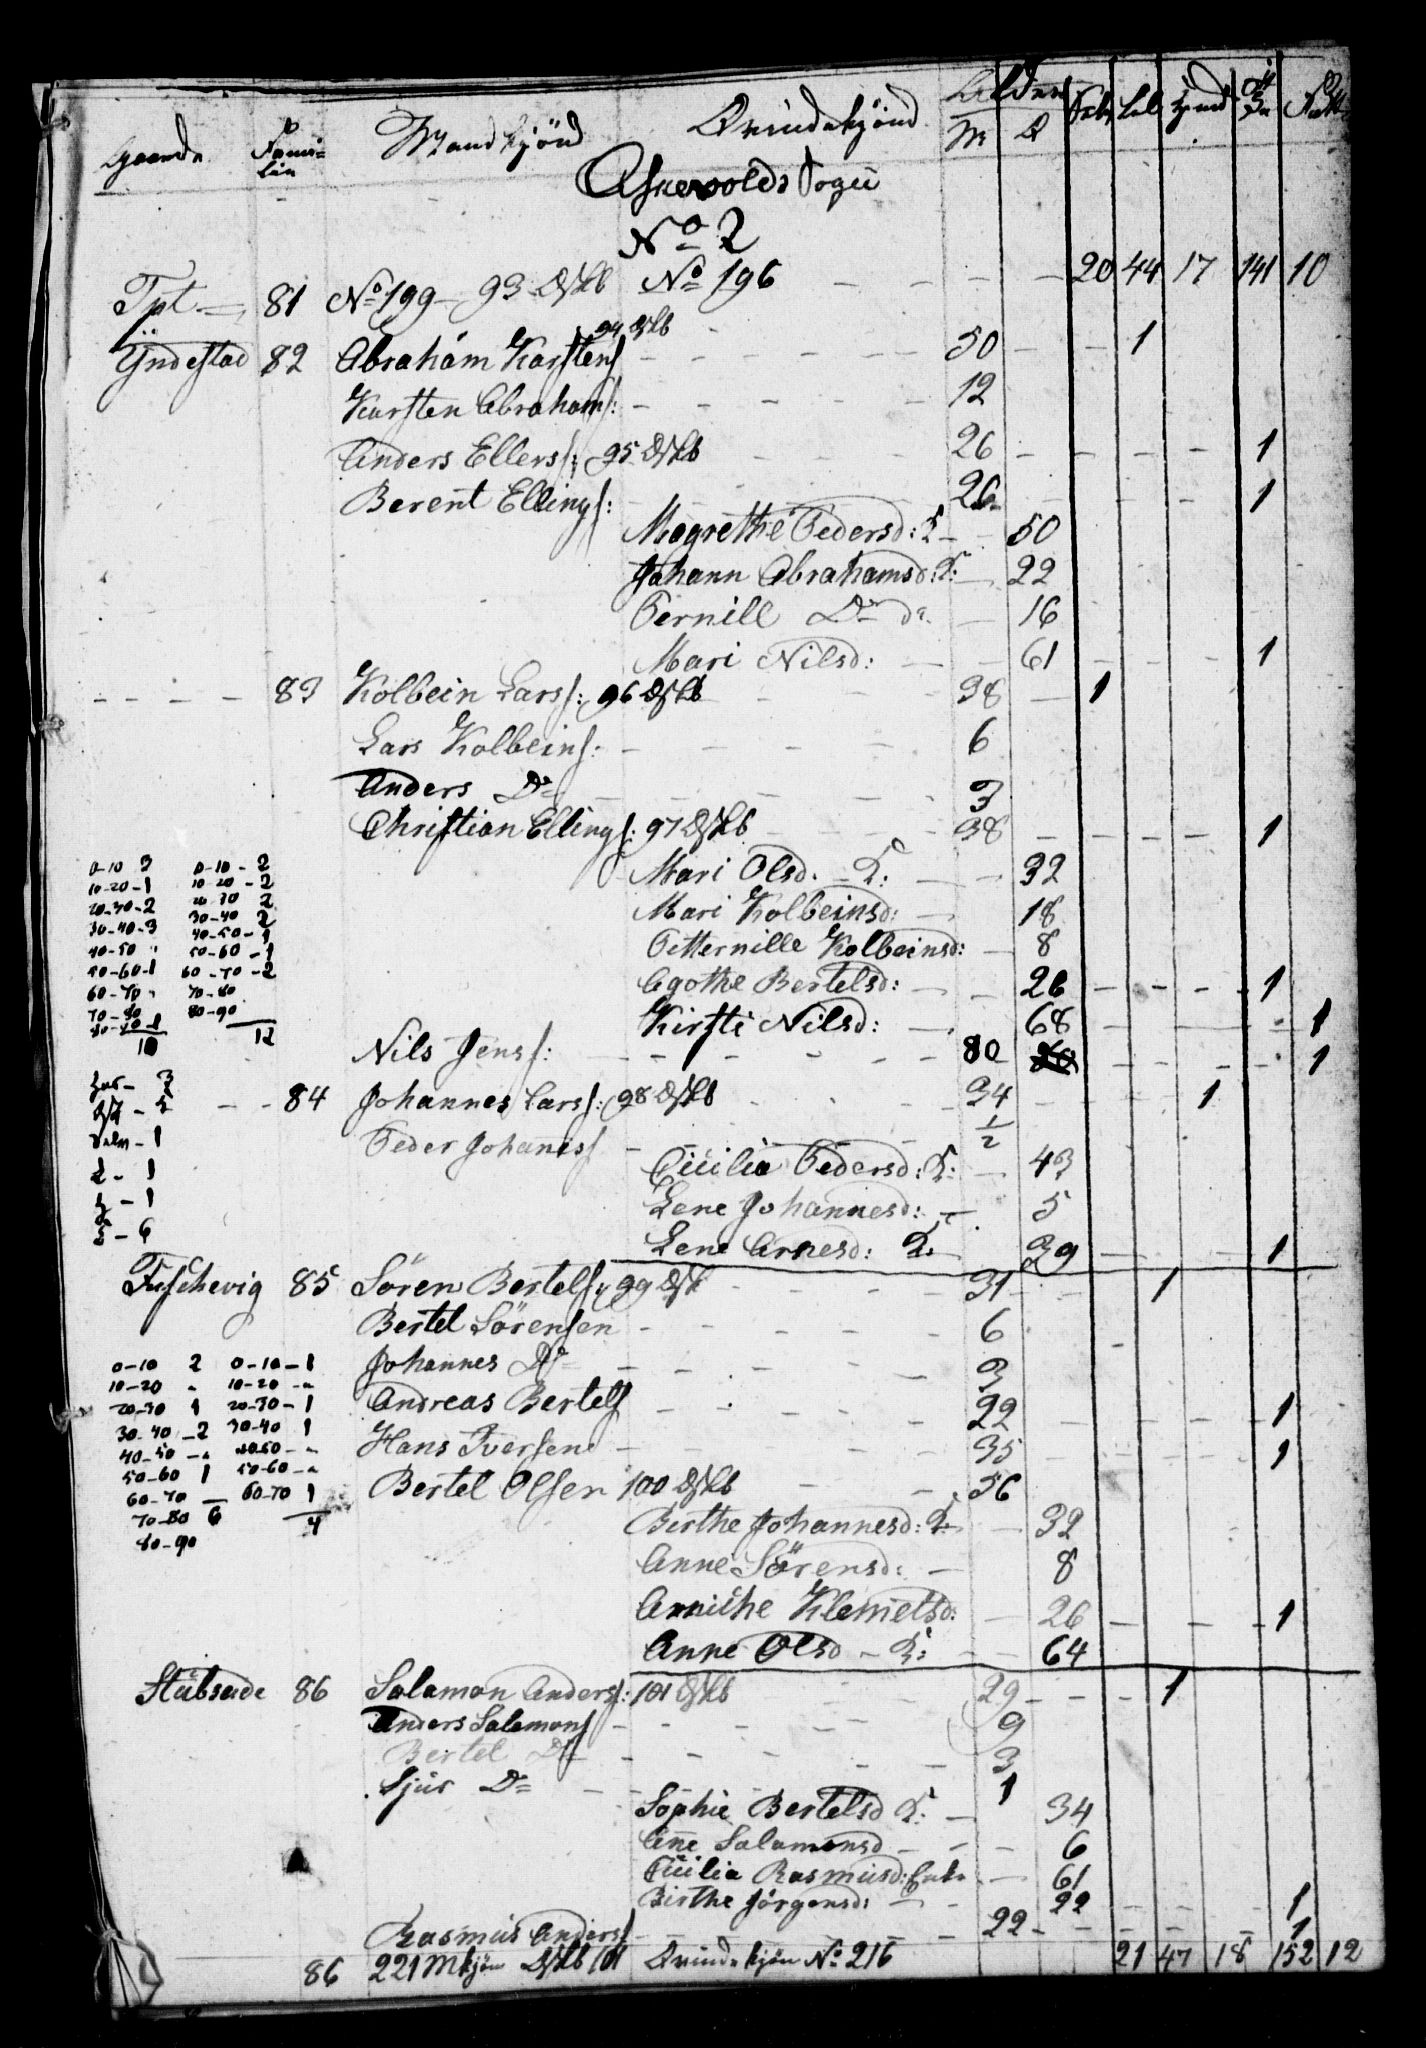 Gaarde Fami- Mandkjönd Qvindekjönd Alder Selv Leil Hjmd Tj Fatt
lien M Q
Askevolds Sogn
No 2
Tpt 81 No 199 - 93 Ægtb No 196 20 44 17 141 10
Yndestad 82 Abraham Karstens 94 50 1
Karsten Abrahams: 12
Anders Ellers: 95 26 1
Berent Ellings: 26 1
Magrethe Pedersd: K 50
Johann Abrahamsd: K: 22
Pernill Do do 16
Mari Nilsd: 61 1
83 Kolbein Larss: 96 38 1
Lars Kolbeins: 6
Anders Do 3
Christian Ellings: 97 38 1
0-10 3 0-10-2 Mari Olsd. K: 32
10-20-1 10-20-2 Mari Kolbeinsd: 18
20-30-2 20-30 2
30-40-3 30-40 2 Petternille Kolbeinsd: 8
40-50 " 40-50-1
50-60-1 50-60-1 Agothe Bertelsd: 26 1
60-70 " 60-70-2
70-80 70-80 Kirsti Nilsd: 68 1
80-90 1 80-90
10 12 Nils Jenss: 80 1
84 Johannes Larss: 98 34 1
Peder Johaness 1/2
Cicilia Pedersd: K: 43
Lene Johannesd: 5
Lene Arnesd: K: 39 1
85 Sören Bertels: 99 31 1
Bertel Sörensen 6
0-10 2 0-10-1 Johannes Do 3
10-20 " 10-20-"
20-30 1 20-30-1 Andreas Bertels 22 1
30-40-2 30-40 1
40-50-" 40-50-" Hans Iversen 35 1
50-60 1 50-60-"
60-70 — 60-70 1 Bertel Olsen 100 56
70-80 6 4 Birthe Johannesd: K 32
80-90
Anne Sörensd: 8
Annichе Klemetsd: 26 1
Anne Olsd - K: 64
Stubseide 86 Salamon Anders: 101 29 1
Anders Salamons 9
Bertel Do 3
Sjur Do 1
Sophie Bertelsd K: 34
Ane Salamonsd 6
Cicilia Rasmusd: Enke 61
Birthe Jörgensd: 22 1
Rasmus Anders 22 1
86 221 Mkjön 101 Qvindekjön No 216 21 47 18 152 12